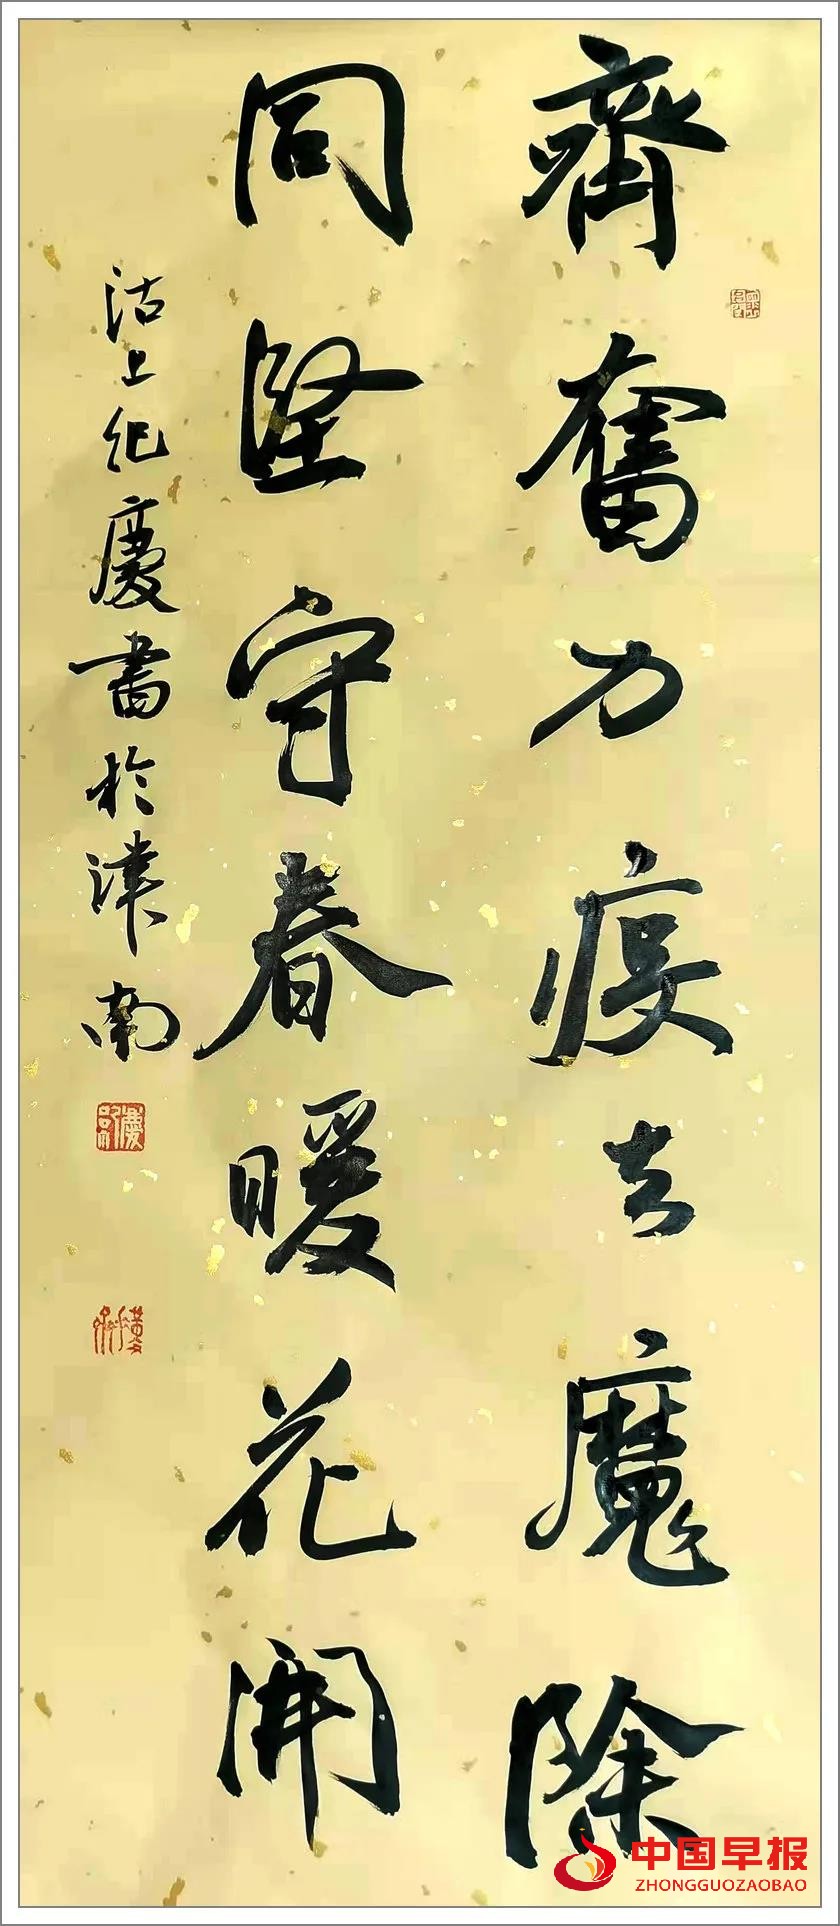 齊奮力疫去魔除
同堅守春暖花開
沽上纪慶書於津南
中国早报
ZHONGGUOZAOBAO